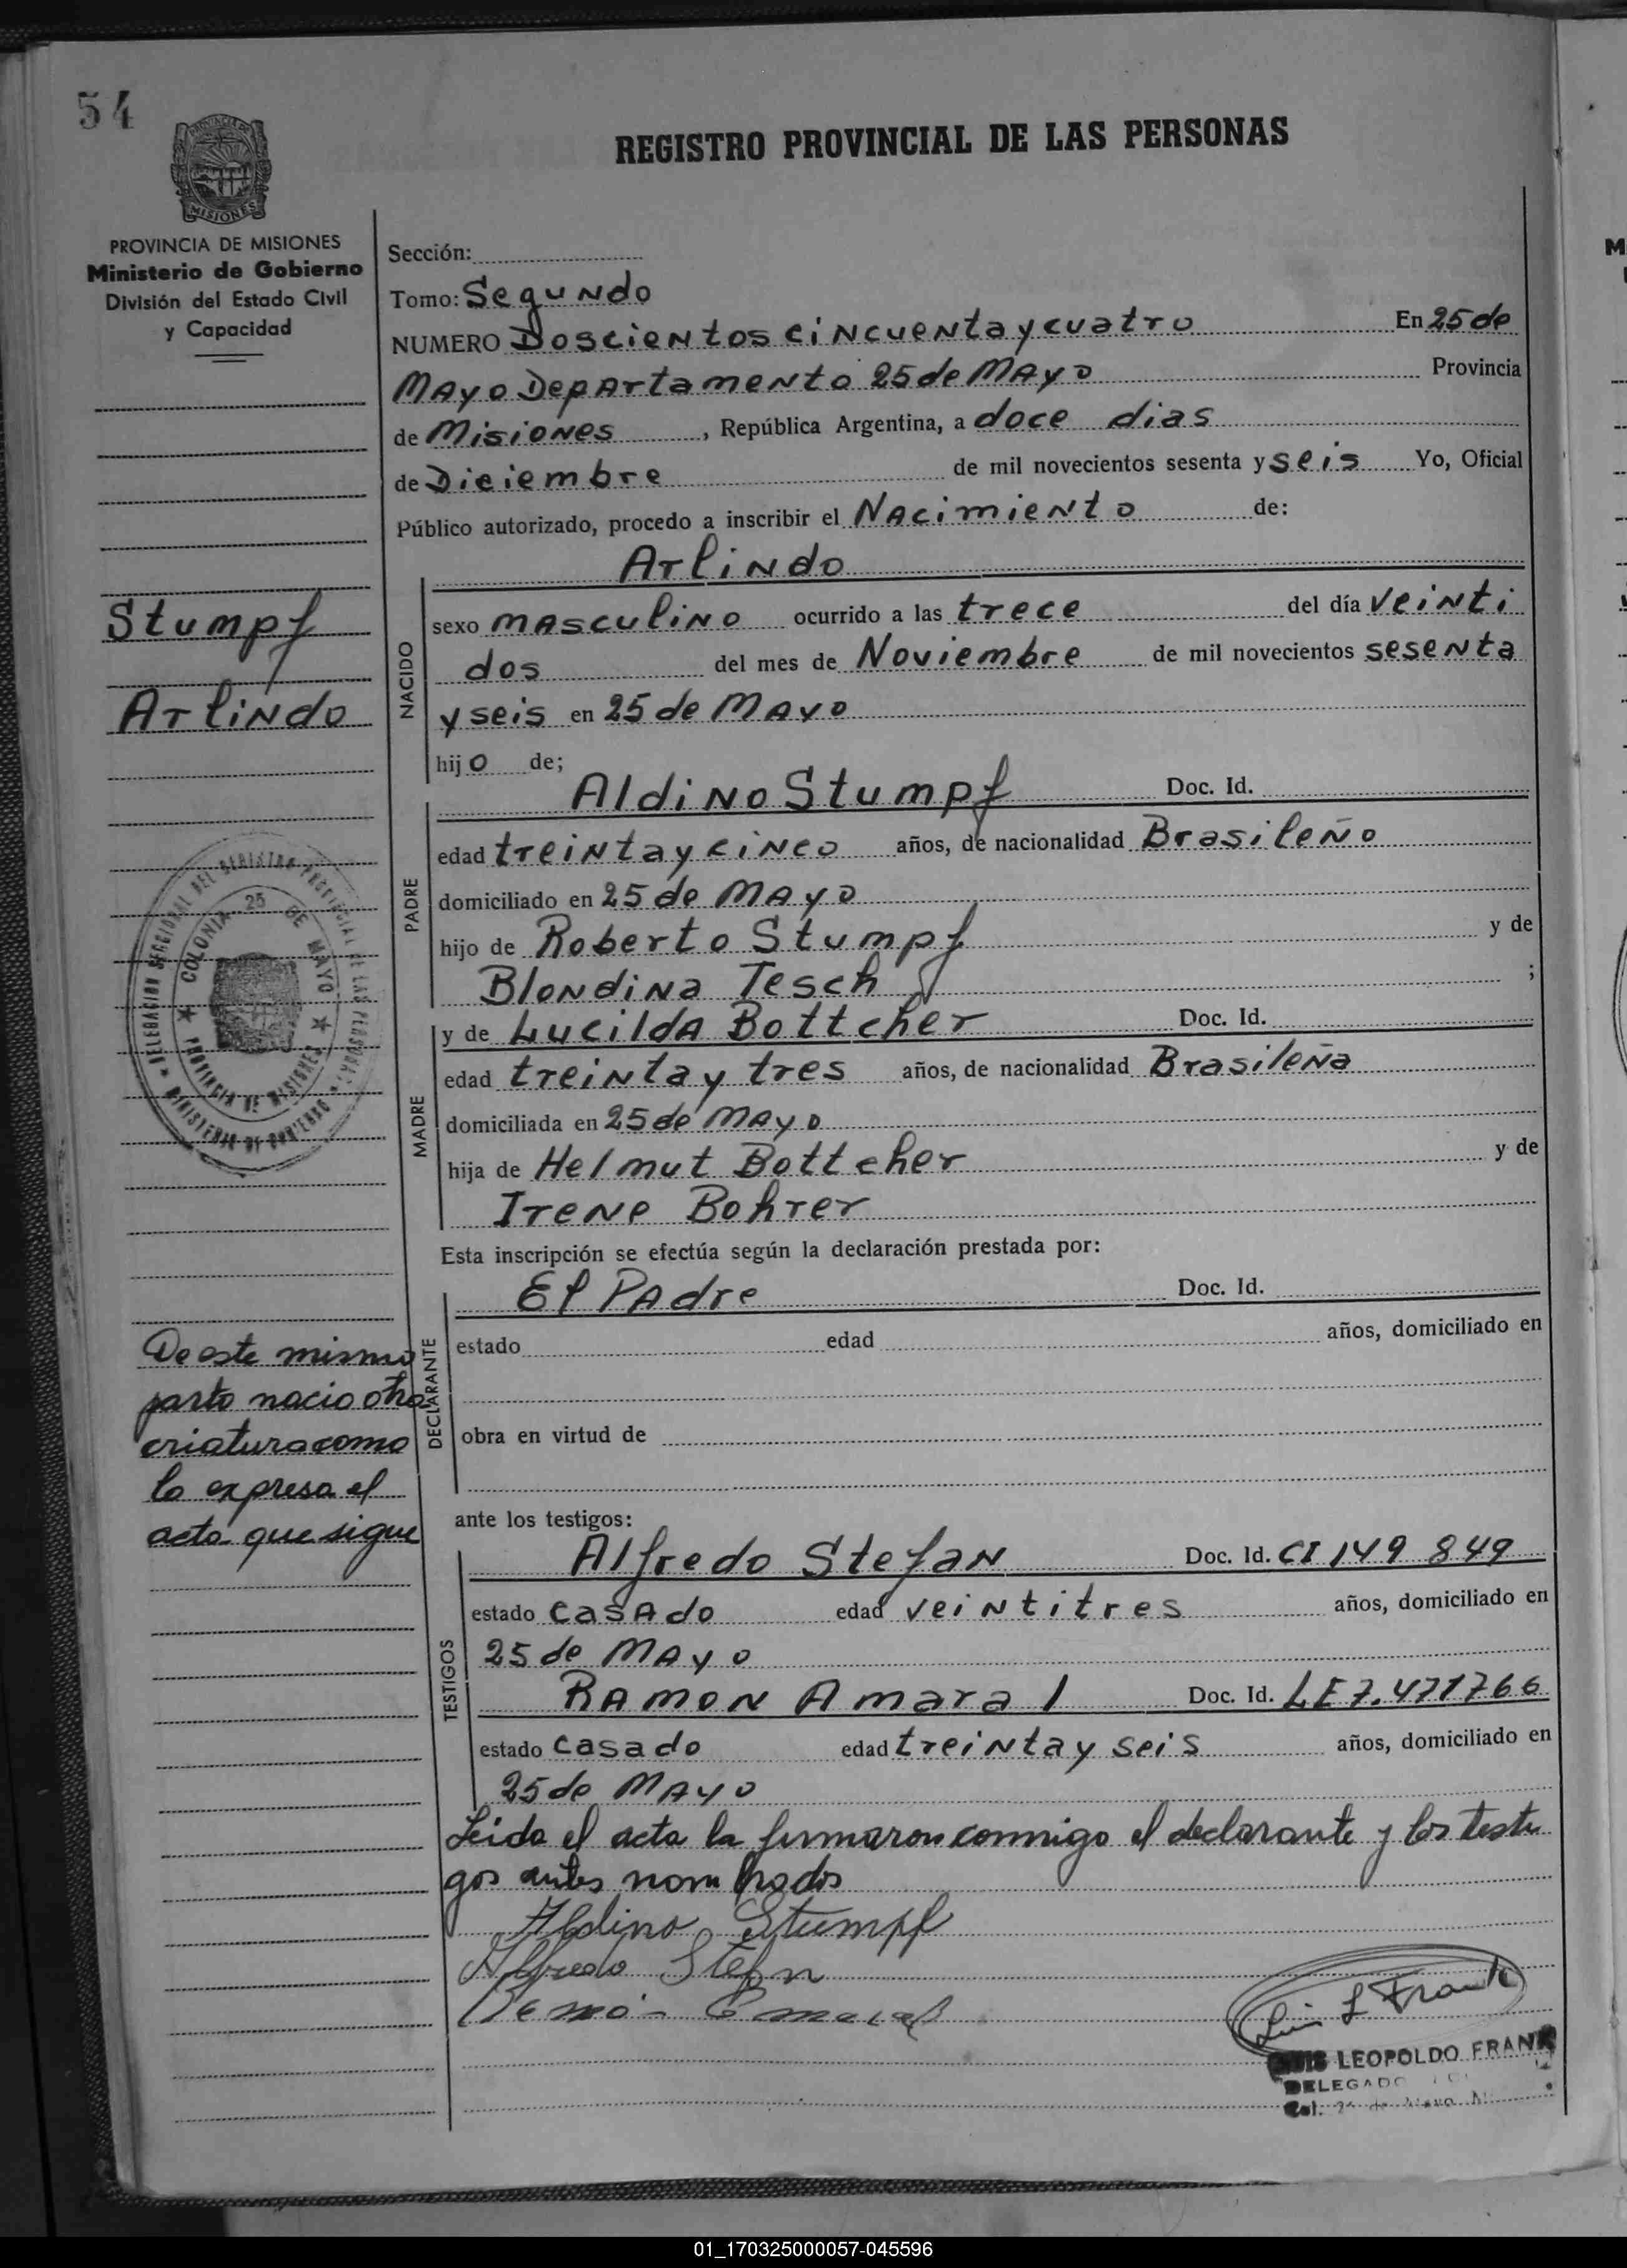 54
REGISTRO PROVINCIAL DE LAS PERSONAS
MISIONES
PROVINCIA DE MISIONES
Ministerio de Gobierno
División del Estado Civil
y Capacidad
Sección:
Tomo: Segundo
NUMERO Doscientos cincuenta y cuatro En 25 de
Mayo Departamento 25 de Mayo Provincia
de Misiones, República Argentina, a doce dias
de Diciembre de mil novecientos sesenta y seis Yo, Oficial
Público autorizado, procedo a inscribir el Nacimiento de:
Arlindo
NACIDO
sexo masculino ocurrido a las trece del día veinti
dos del mes de Noviembre de mil novecientos sesenta
y seis en 25 de Mayo
hijo de;
Stumpf
Arlindo
PADRE
Aldino Stumpf Doc. Id.
edad treinta y cinco años, de nacionalidad Brasileño
domiciliado en 25 de Mayo
hijo de Roberto Stumpf y de
Blondina Tesch ;
MADRE
y de Lucilda Bottcher Doc. Id.
edad treinta y tres años, de nacionalidad Brasileña
domiciliada en 25 de Mayo
hija de Helmut Bottcher y de
Irene Bohrer
DELEGACION SECCIONAL DEL REGISTRO PROVINCIAL DE LAS PERSONAS
MINISTERIO DE GOBIERNO
COLONIA 25 DE MAYO
PROVINCIA DE MISIONES
Esta inscripción se efectúa según la declaración prestada por:
DECLARANTE
El Padre Doc. Id.
estado edad años, domiciliado en
obra en virtud de
De este mismo
parto nacio otra
criatura como
lo expresa el
acta que sigue
ante los testigos:
TESTIGOS
Alfredo Stefan Doc. Id. CI 149 849
estado casado edad veintitres años, domiciliado en
25 de Mayo
Ramon Amaral Doc. Id. LE 7.471766
estado casado edad treinta y seis años, domiciliado en
25 de Mayo
Leida el acta la firmaron conmigo el declarante y los testi
gos antes nombrados
Aldino Stumpf
Alfredo Stefan
Luis L Frank
LUIS LEOPOLDO FRANK
DELEGADO
Col. 25 de Mayo
01_170325000057-045596